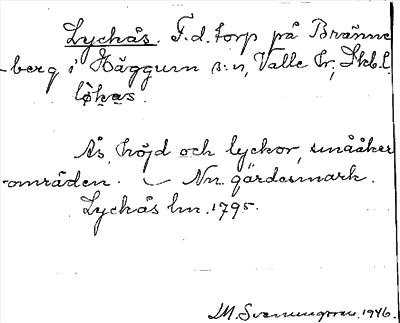 Lyckås. F.d. torp på Bränne
-berg i Häggum s:n, Valle hr, Skb.l.
Ås, höjd och lyckor, smååker
-områden. — Nu gärdesmark.
Lyckås hn. 1795.
M. Svenungsson. 1946.